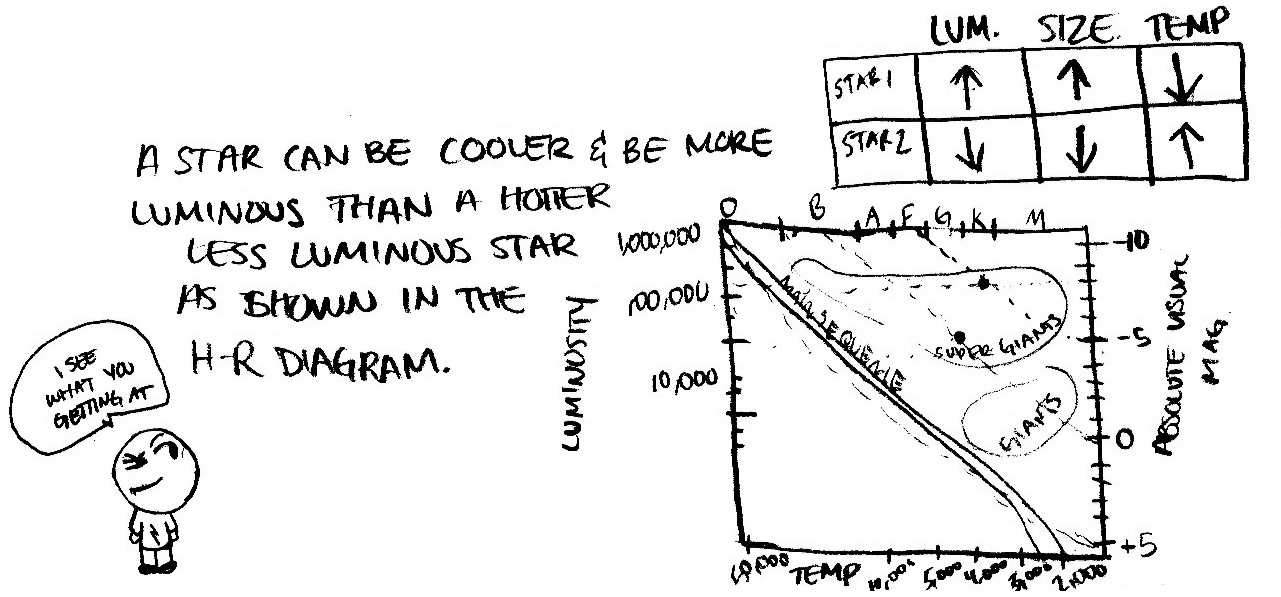 LUM. SIZE. TEMP
STAR1 ↑ ↑ ↓
STAR2 ↓ ↓ ↑
A STAR CAN BE COOLER & BE MORE
LUMINOUS THAN A HOTTER
LESS LUMINOUS STAR
AS SHOWN IN THE
H-R DIAGRAM.
I SEE
WHAT YOU
GETTING AT
O B A F G K M
LUMINOSITY
1,000,000
100,000
10,000
MAIN SEQUENCE
SUPER GIANTS
GIANTS
-10
-5
0
+5
ABSOLUTE VISUAL
MAG.
TEMP
5,000 4,000 3,000 2,000